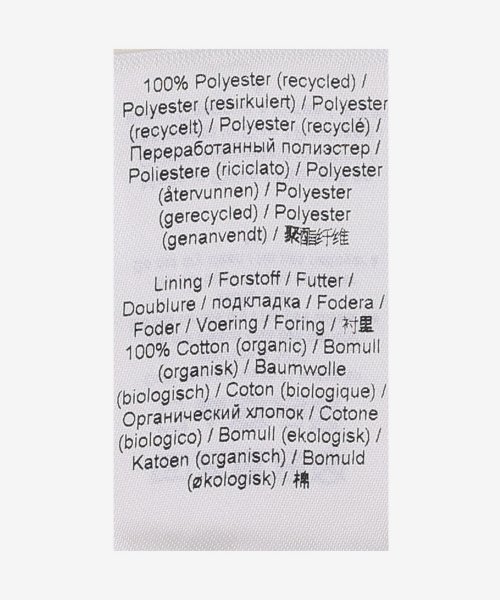 100% Polyester (recycled) /
Polyester (resirkulert) / Polyester
(recycelt) / Polyester (recyclé) /
Переработанный полиэстер /
Poliestere (riciclato) / Polyester
(återvunnen) / Polyester
(gerecycled) / Polyester
(genanvendt) / 聚酯纤维
Lining / Forstoff / Futter /
Doublure / подкладка / Fodera /
Foder / Voering / Foring / 衬里
100% Cotton (organic) / Bomull
(organisk) / Baumwolle
(biologisch) / Coton (biologique) /
Органический хлопок / Cotone
(biologico) / Bomull (ekologisk) /
Katoen (organisch) / Bomuld
(økologisk) / 棉